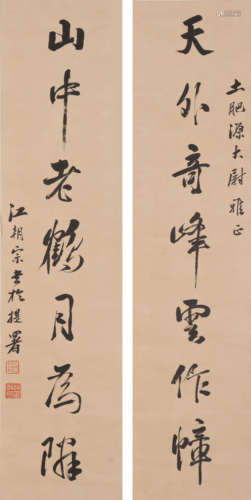 天外奇峰雲作幛
土肥源大尉雅正
山中老鶴月為隣
江朝宗書於提署